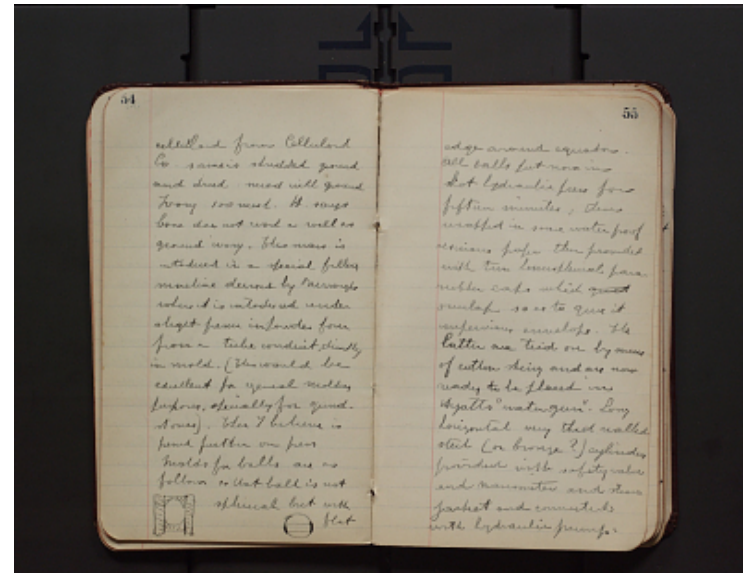 54
celluloid from Celluloid
Co. shredded ground
and dried mixed with ground
Ivory 100 mesh. He says
bone does not work as well as
ground ivory. This mass is
introduced in a special filling
machine devised by Burroughs
where it is introduced under
slight pressure in powder form
from a tube conduit, directly
in mold. (This would be
excellent for general molding
purposes, specially for grind-
stones). This I believe is
further on press
Molds for balls are as
follows so that ball is not
spherical but with
flat
55
edge around equator.
All balls put now in
hot hydraulic press for
fifteen minutes, then
wrapped in some water proof
resinous paper then provided
with two hemispherical para
rubber caps which
overlap so as to give it
impervious envelope. The
latter are tied on by means
of cotton string and are now
ready to be placed in
Hyatts "water gun". Long
horizontal very thick walled
steel (or bronze?) cylinders
provided with safety valve
and manometer and steam
jacket and connected
with hydraulic pumps.